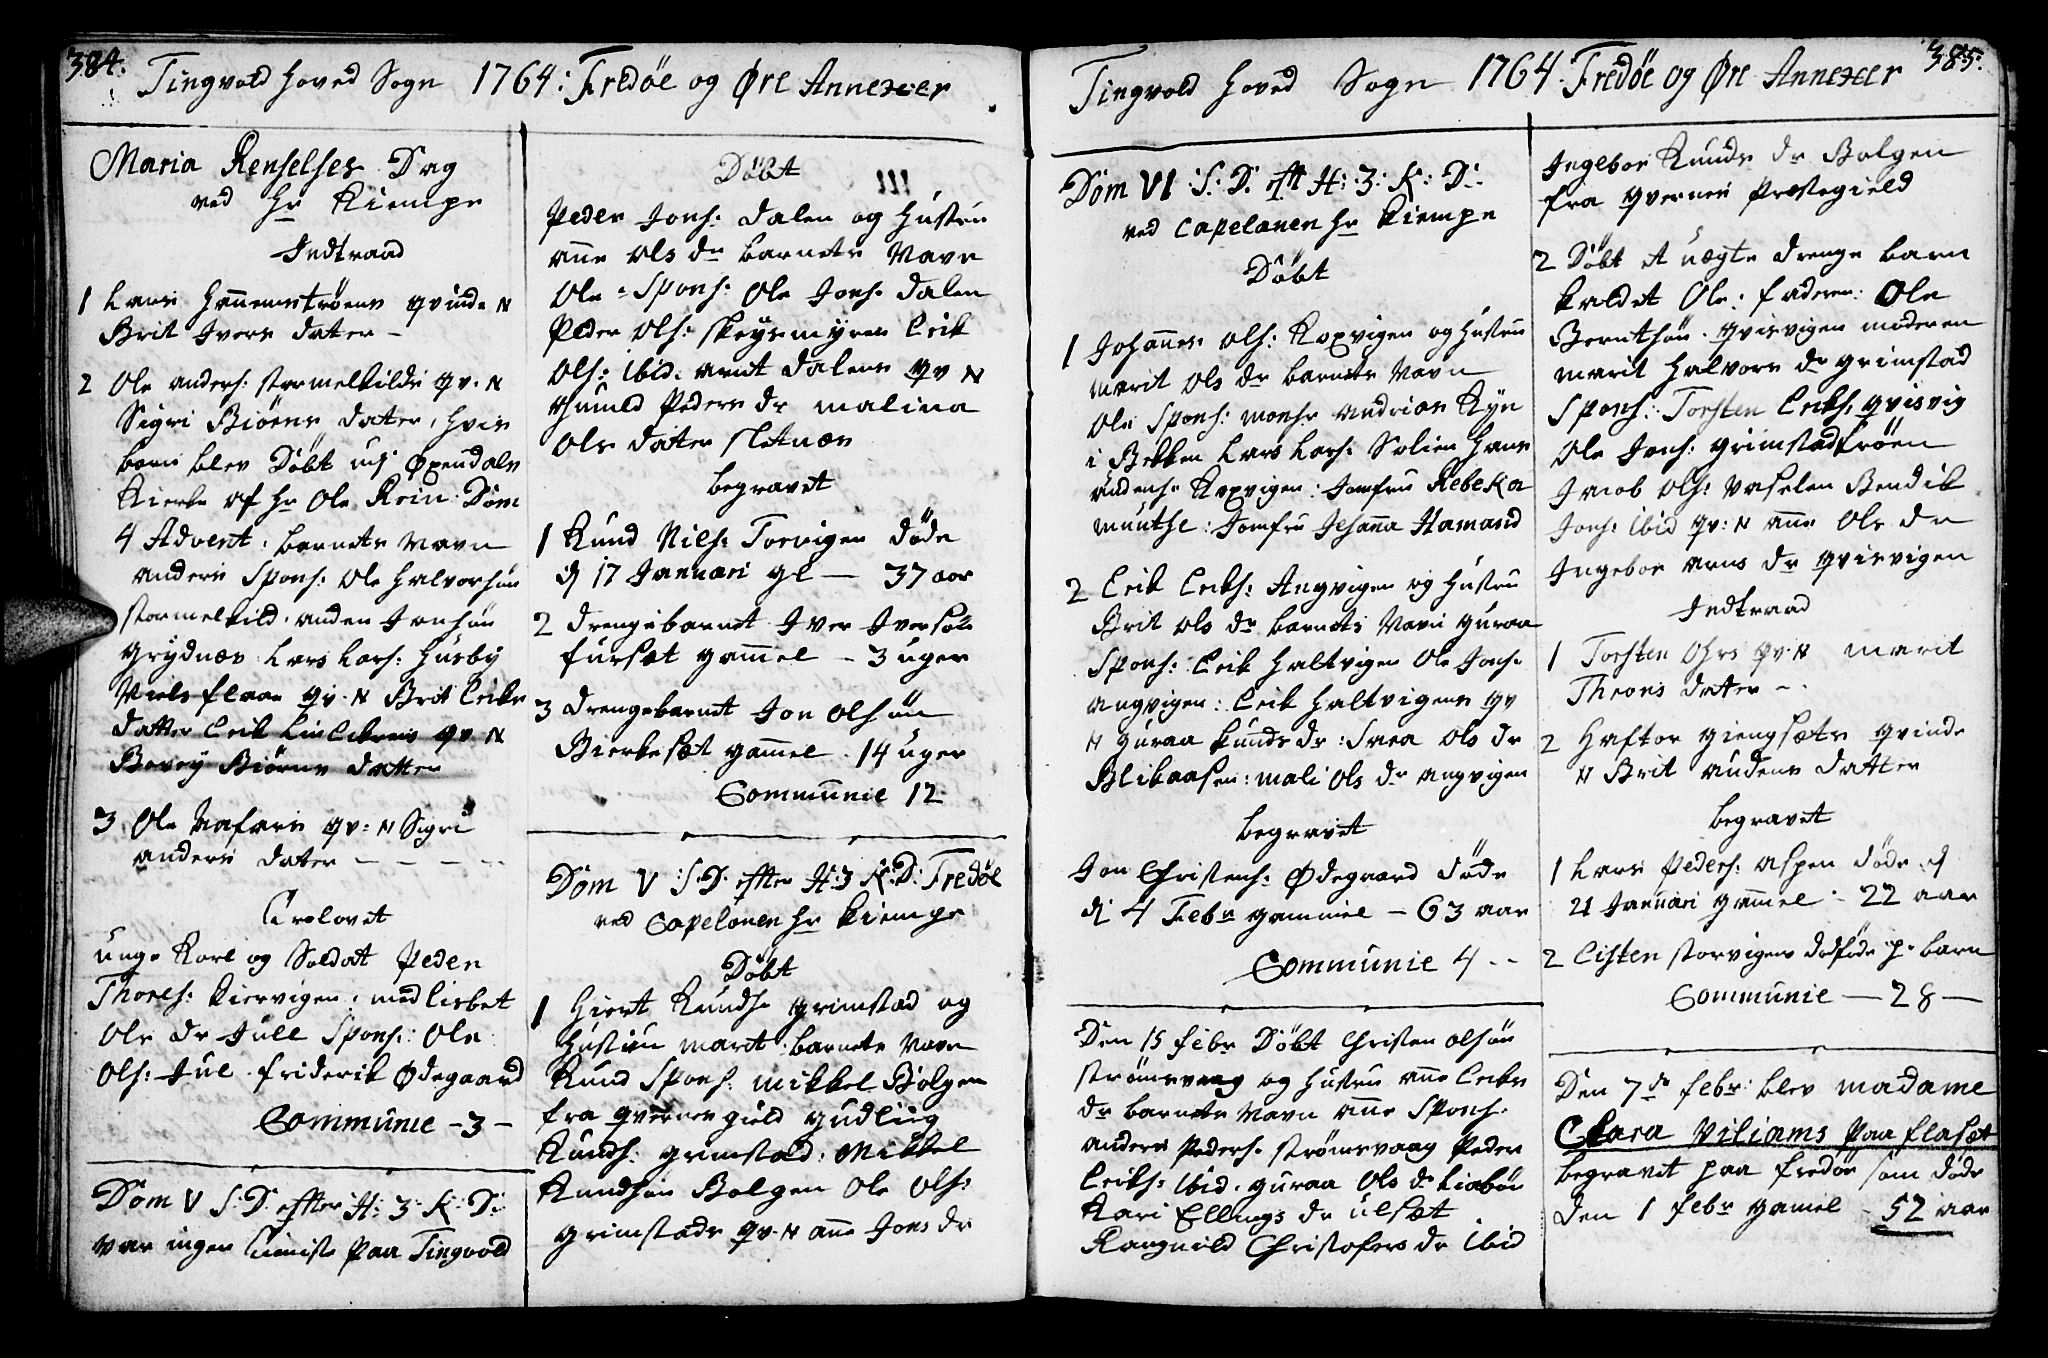 384.
Tingvold Hoved Sogn 1764: Fredöe og Øre Annexer
Maria Renselses Dag
ved Hr Kiempe
Indtraad
1 Lars Hammerstrøens qvinde N
Brit Ivers dater –
2 Ole anders: stormelkilds qv. N
Sigri Biörns dater, hvis
barn blev Döbt udj Øxendals
Kierke af Hr Ole Rein. Dom
4 Advent. barnets Navn
anders Spons: Ole Halvorsøn
stormelkild. anders Jonsøn
Grydnæs Lars Lars: Husby
Niels flaae qv. N Brit Eriks
datter Erik qv. N
Biörns datter
3 Ole Nafars qv: N Sigri
anders dater – – – –
Trolovet
unge Karl og Soldat Peder
Thores: Kiervigen, med Lisbet
Ols dr Jull Spons: Ole
Ols: Jul. friderik Ødegaard
Communie – 3 –
Dom V S. D. effter H. 3. K. D:
var ingen Tieniste paa Tingvold
Döbt
Peder Jons: dalen og Hustru
ane Ols dr barnets Navn
Ole – Spons: Ole Jons: dalen
Peder Ols: skeysmyren Erik
Ols: ibid. arnt dalens qv N
Peders dr malina
Ols dater sletnæs
begravet
1 Knud Niels: Torvigen döde
dj 17 Januari gl — 37 aar
2 drengebarnet Iver Iversøn
fursæt gamel – 3 uger
3 drengebarnet Jon Olsøn
Bierkesæt gamel. 14 uger
Communie 12
Dom V S. D. effter H: 3 K: D: Fredöe
ved Capelanen Hr Kiempe
Döbt
1 Siert Knuds: grimstad og
Hustru marit. barnets Navn
Knud Spons: Mikkel Bolgen
fra qvernes gield gudlög
Knuds: grimstad: Mikkel
Knudsøn Bolgen Ole Ols:
grimstads qv. N ane Jons dr
Tingvold Hoved Sogn 1764 Fredöe og Øre Annexer 385.
Dom VI S. D. eft H: 3: K: D:
ved Capelanen Hr Kiempe
Döbt
1 Johannes Ols: Koxvigen og Hustru
marit Ols dr barnets Navn
Ole Spons: monsr andrias Kyn
i Bekken Lars Lars: Solien Hans
anders: Koxvigen: Jomfru Rebeka
muuthe: Jomfru Jehanna Hamand
2 Erik Eriks: Angvigen og Hustru
Brit Ols dr barnets Navn guraa
Spons: Erik Haltvigen Ole Jons:
angvigen: Erik Haltvigens qv
N guraa knuds dr: Sara Ols dr
Blikaasen: mali Ols dr angvigen
begravet
Jon Christens: Ødegaard döde
dj 4 Febr gammel – 63 aar
Communie 4 – –
Den 15 febr Döbt Christen Olsøn
strömsvaag og Hustru ane Eriks
dr barnets Navn ane Spons:
anders Peders: strömsvaag Peder
Eriks: ibid. guraa Ols dr Liabøe
Kari Ellings dr ulsæt
Rangnild Christofers dr ibid
Ingebor Knuds dr Bolgen
fra qvernes Præstegield
2 Döbt et uægte drenge barn
kaldet Ole: faderen: Ole
Berntsøn qvisvigen moderen
marit Halvors dr grimstad
Spons: Torsten Eriks: qvisvig
Ole Jons: grimstadtröen
Jacob Ols: Vaslen Bendik
Jons: ibid qv: N ane Ols dr
Ingebor arns dr qvisvigen
Indtraad
1 Torsten qv. N marit
Throns dater –
2 Haftor giengsæts qvinde
N Brit anders datter
begravet
1 Lars Peders: aspen döde dj
21 Januari gamel – 22 aar
2 Eisten storvigens dødföde p. barn
Communie — 28 —
Den 7de febr: blev madame
Clara Viliams paa flasæt
begravet paa fredöe som döde
den 1 febr gamel – 52 aar